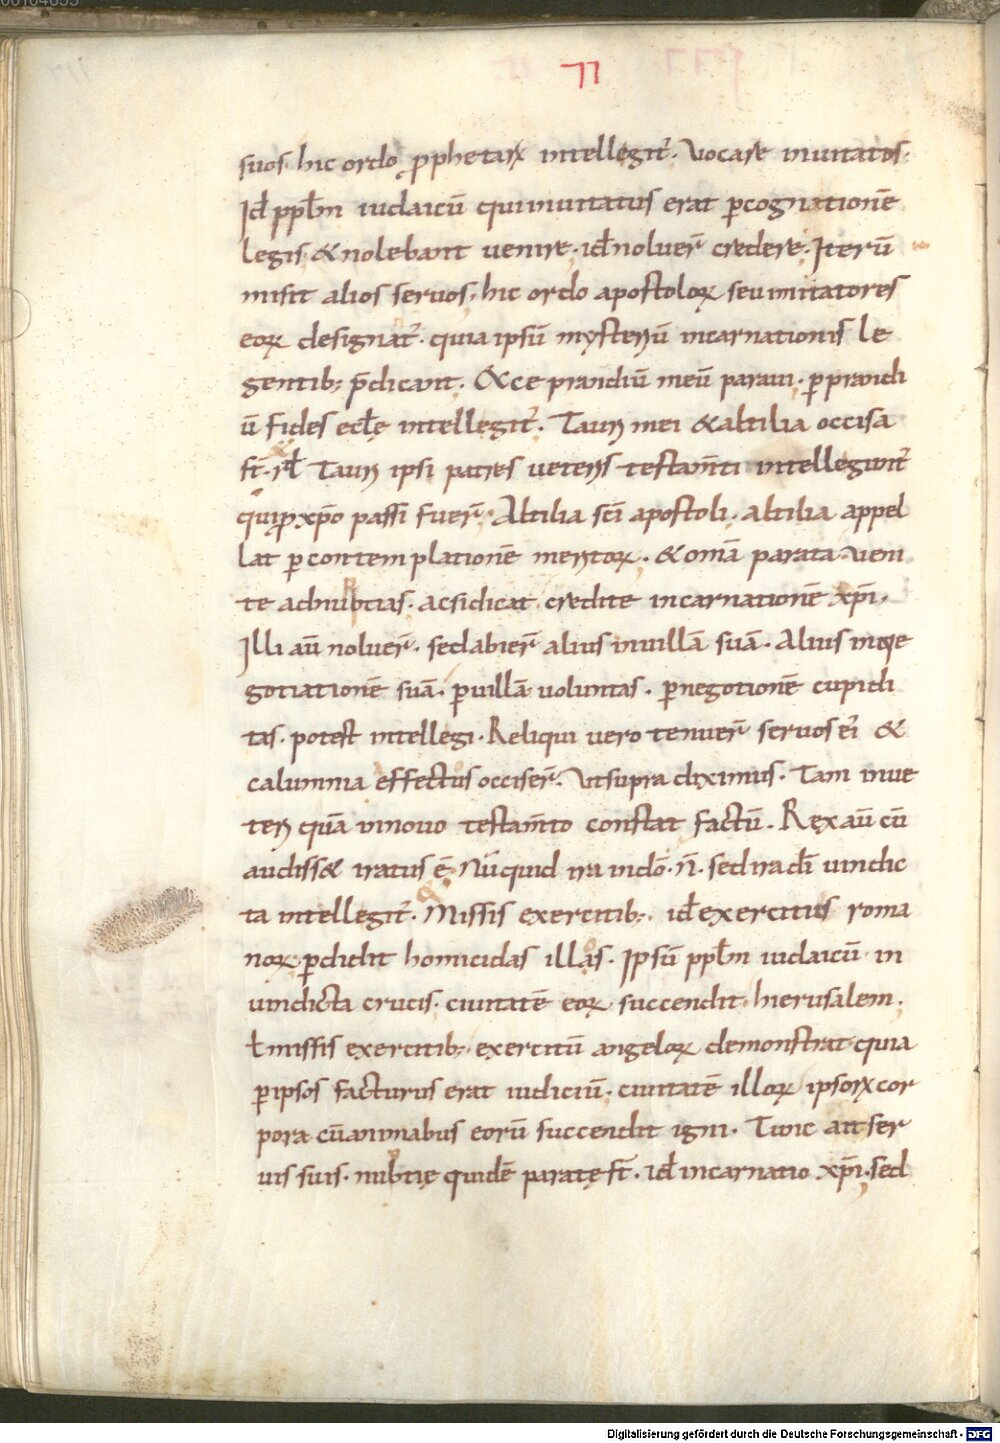 71
suos. hic ordo ꝓphetarꝝ intellegit᷑. Vocare inuitatos.
Id᷑ pp̄lm iudaicū qui inuitatus erat ꝑcognationē
legis. & nolebant uenire. id᷑ noluer̄ credere. Iterū
misit alios seruos. hic ordo apostoloꝝ seu imitatores
eoꝝ designat᷑. quia ipsū mysteriū incarnationis le
gentib; p̄dicant. Ecce prandiū meū paraui. ꝑ prandi
ū fides ecl̄ę intellegit᷑. Tauri mei & altilia occisa
st̄. id᷑ Tauri ipsi patres ueteris testam̄ti intellegunt᷑
qui ꝓ xp̄o passi fuer̄. Altilia sc̄i apostoli. altilia appel
lat ꝑ contemplationē meritoꝝ. & om̄a parata. ueni
te ad nubtias. acsi dicat credite incarnationē xp̄i.
Illi aū noluer̄. sed abier̄ alius in uillā suā. Alius in ne
gotiationē suā. ꝑ uillā uoluntas. ꝑ negotionē cupidi
tas. potest intellegi. Reliqui uero tenuer̄ seruos ei᷑ &
calumnia effectus occiser̄. Vt supra diximus. Tam in ue
teri quā in nouo testam̄to constat factū. Rex aū cū
audiss& iratus ē. Nūquid ira in dō. n̄. sed ira dī uindic
ta intellegit᷑. Missis exercitib;. id᷑ exercitus roma
noꝝ ꝑdidit homicidas illas. Ipsū pp̄lm iudaicū in
uindicta crucis. ciuitatē eoꝝ succendit. hierusalem.
ł missis exercitib;. exercitū angeloꝝ demonstrat quia
ꝑ ipsos facturus erat iudiciū. ciuitatē illoꝝ ipsorꝝ cor
pora cū animabus eorū succendit igni. Tunc ait ser
uis suis. nubtię quidē paratę st̄. id᷑ incarnatio xp̄i. sed
Digitalisierung gefördert durch die Deutsche Forschungsgemeinschaft - DFG